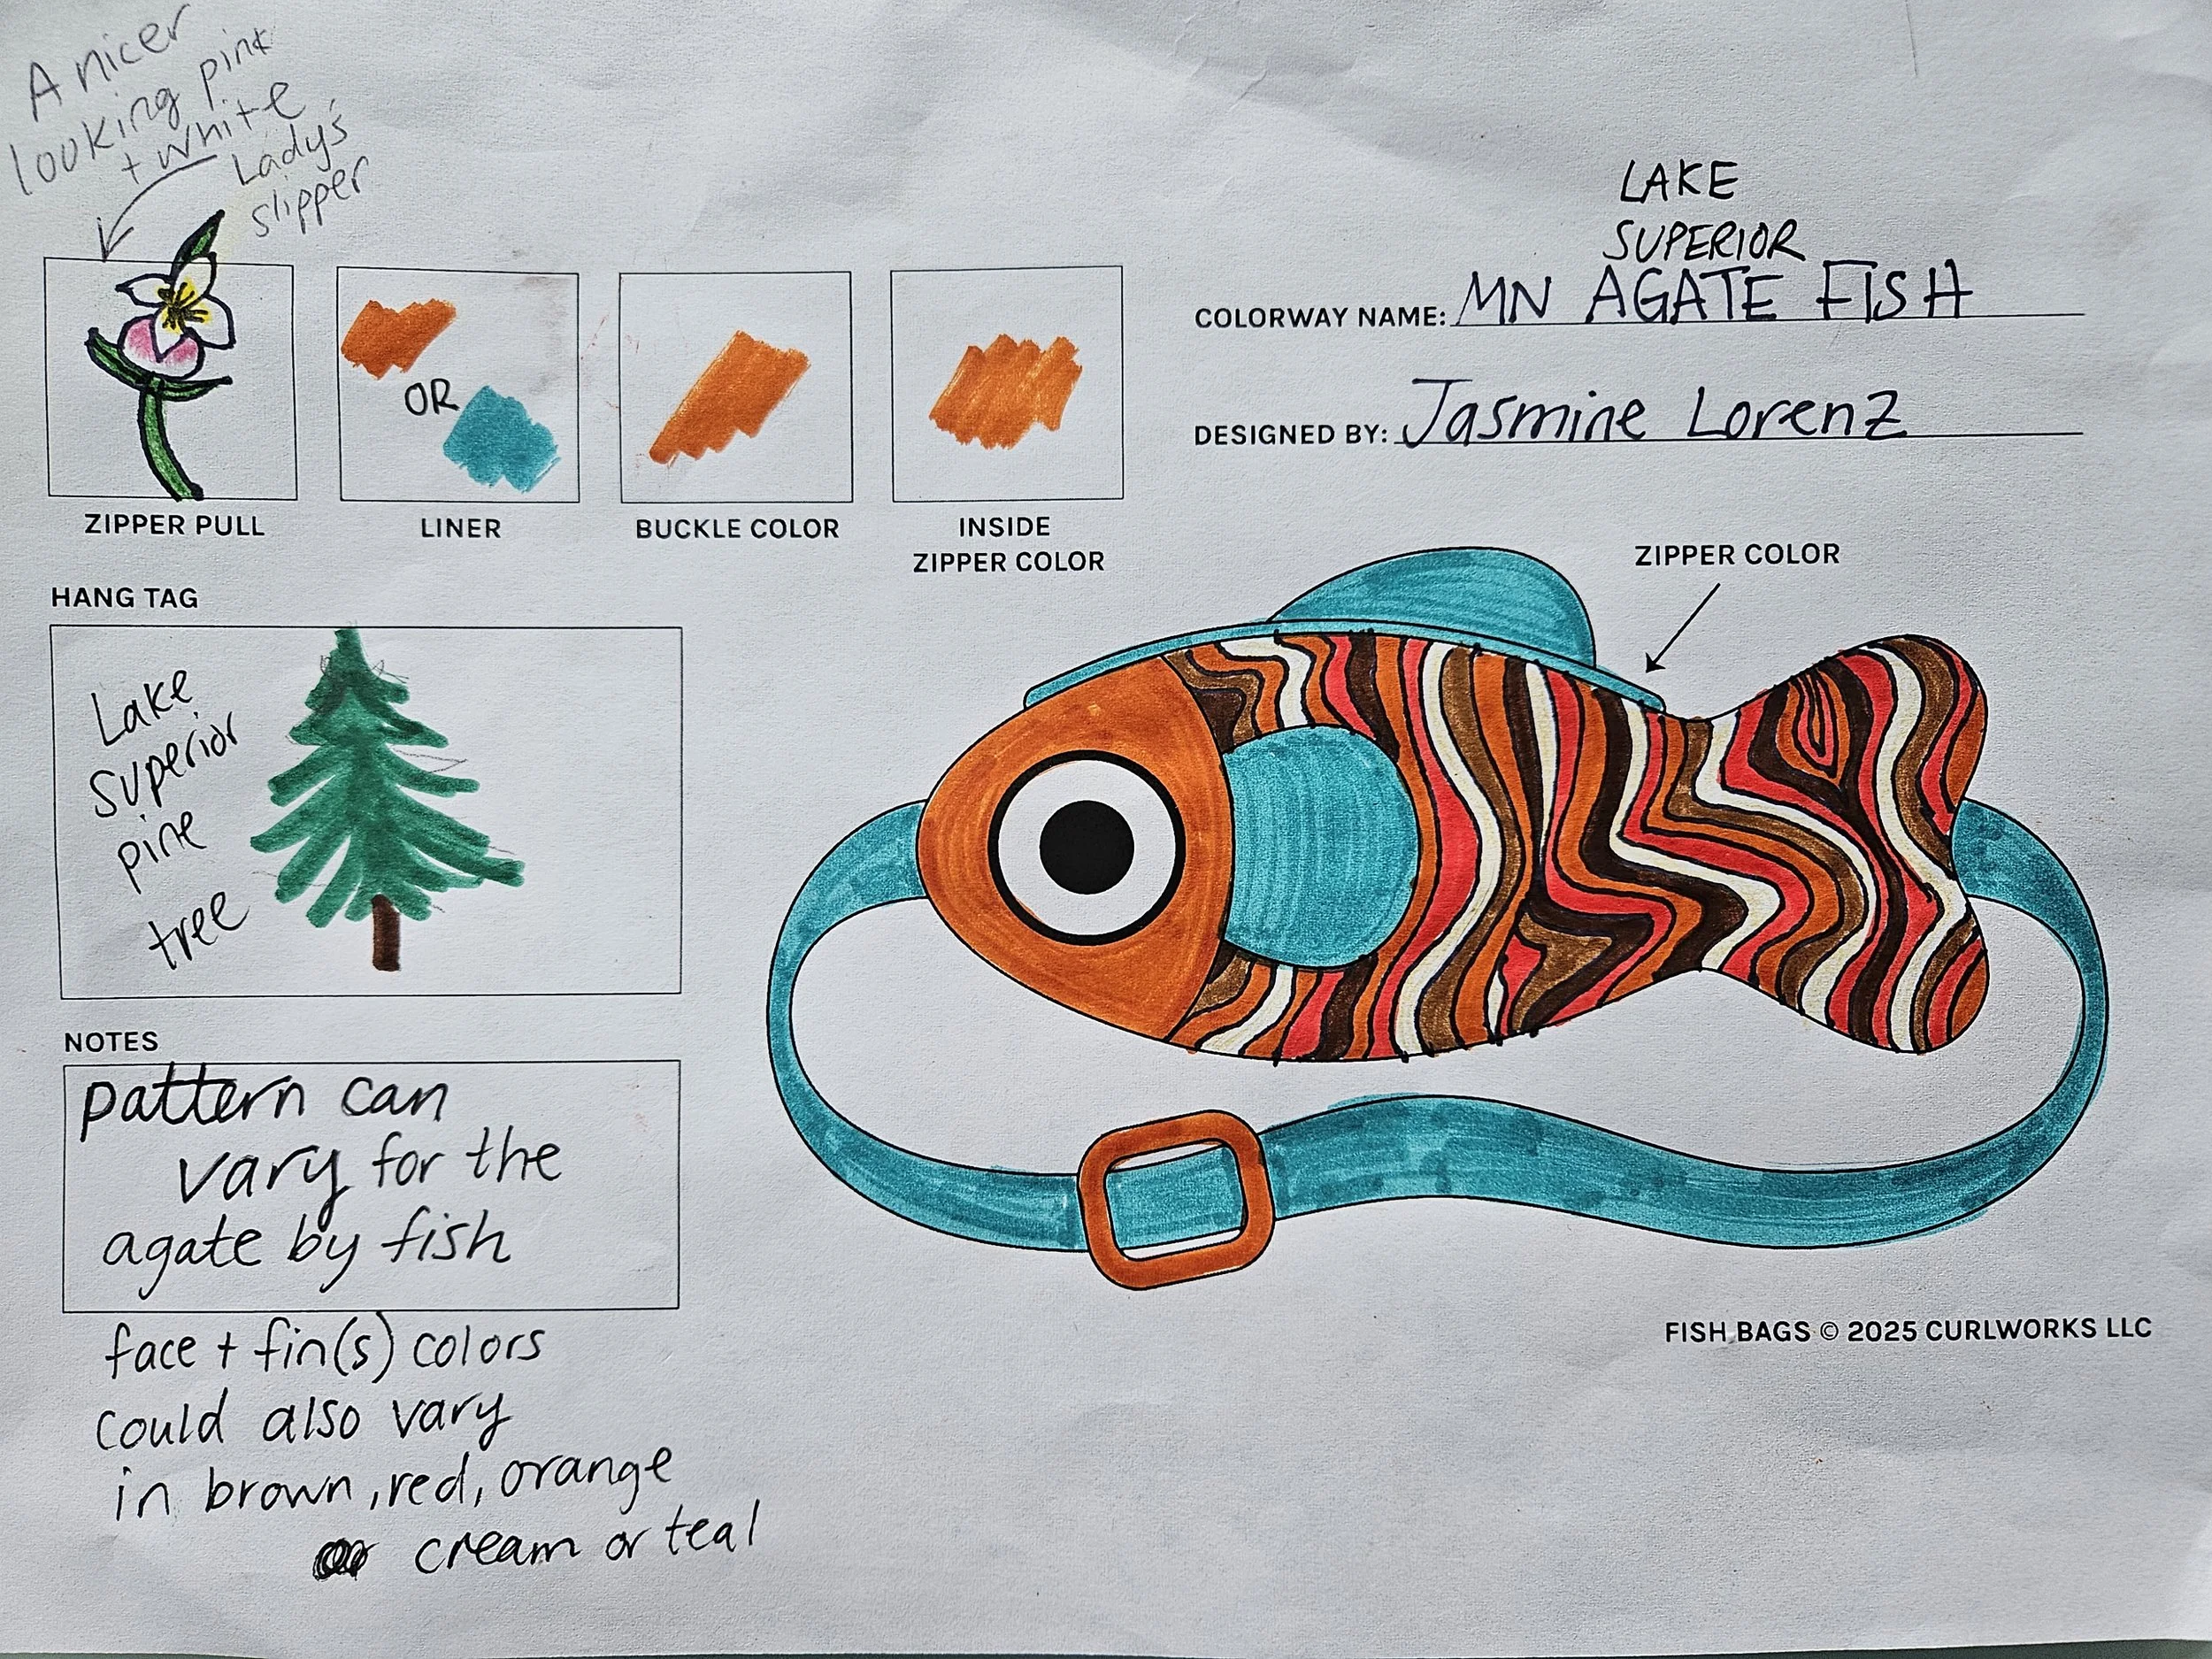 A nicer
looking pink
+ white
Lady's
slipper
ZIPPER PULL
OR
LINER
BUCKLE COLOR
INSIDE
ZIPPER COLOR
LAKE
SUPERIOR
COLORWAY NAME: MN AGATE FISH
DESIGNED BY: Jasmine Lorenz
ZIPPER COLOR
HANG TAG
Lake
Superior
pine
tree
NOTES
pattern can
vary for the
agate by fish
face + fin(s) colors
could also vary
in brown, red, orange
cream or teal
FISH BAGS © 2025 CURLWORKS LLC